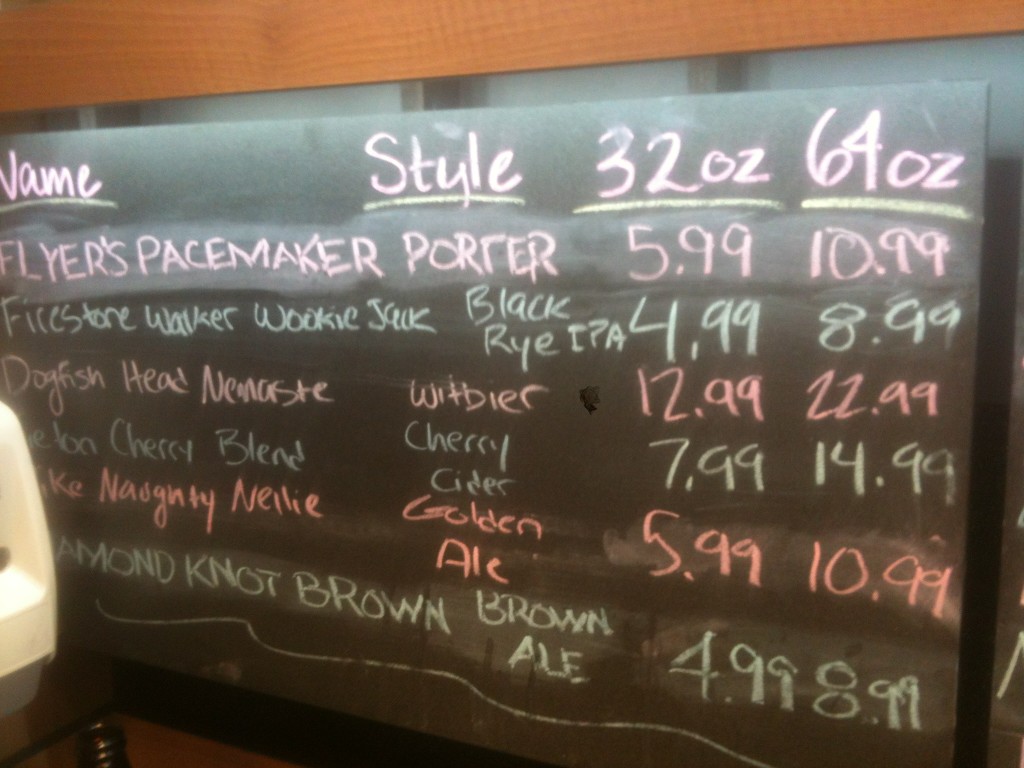 Name Style 32oz 64oz
FLYER'S PACEMAKER PORTER 5.99 10.99
Firestone Walker Wookie Jack Black Rye IPA 4.99 8.99
Dogfish Head Nemaste Witbier 12.99 22.99
Cherry Blend Cherry Cider 7.99 14.99
Naughty Nellie Golden Ale 5.99 10.99
AMOND KNOT BROWN BROWN ALE 4.99 8.99